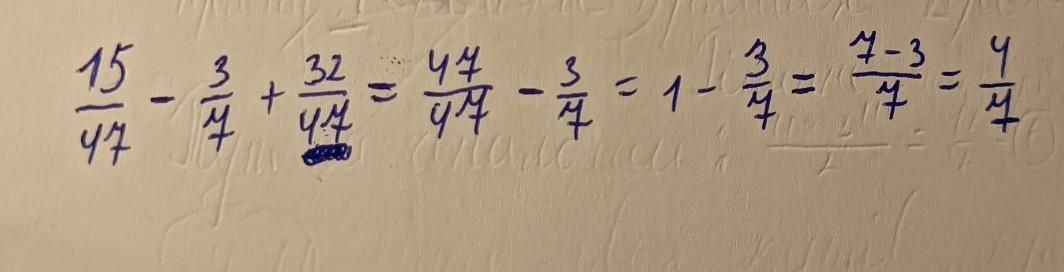 15/47 - 3/7 + 32/47 = 47/47 - 3/7 = 1 - 3/7 = (7-3)/7 = 4/7